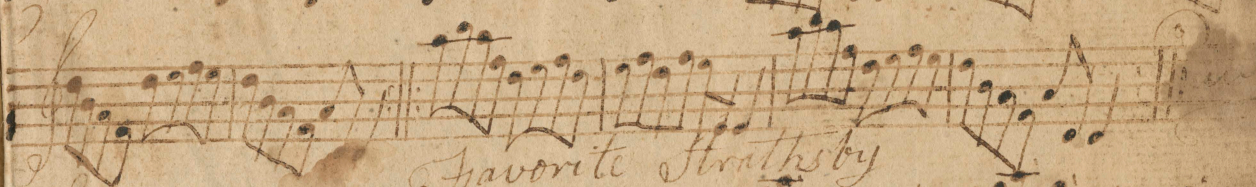 Favorite Strathsby